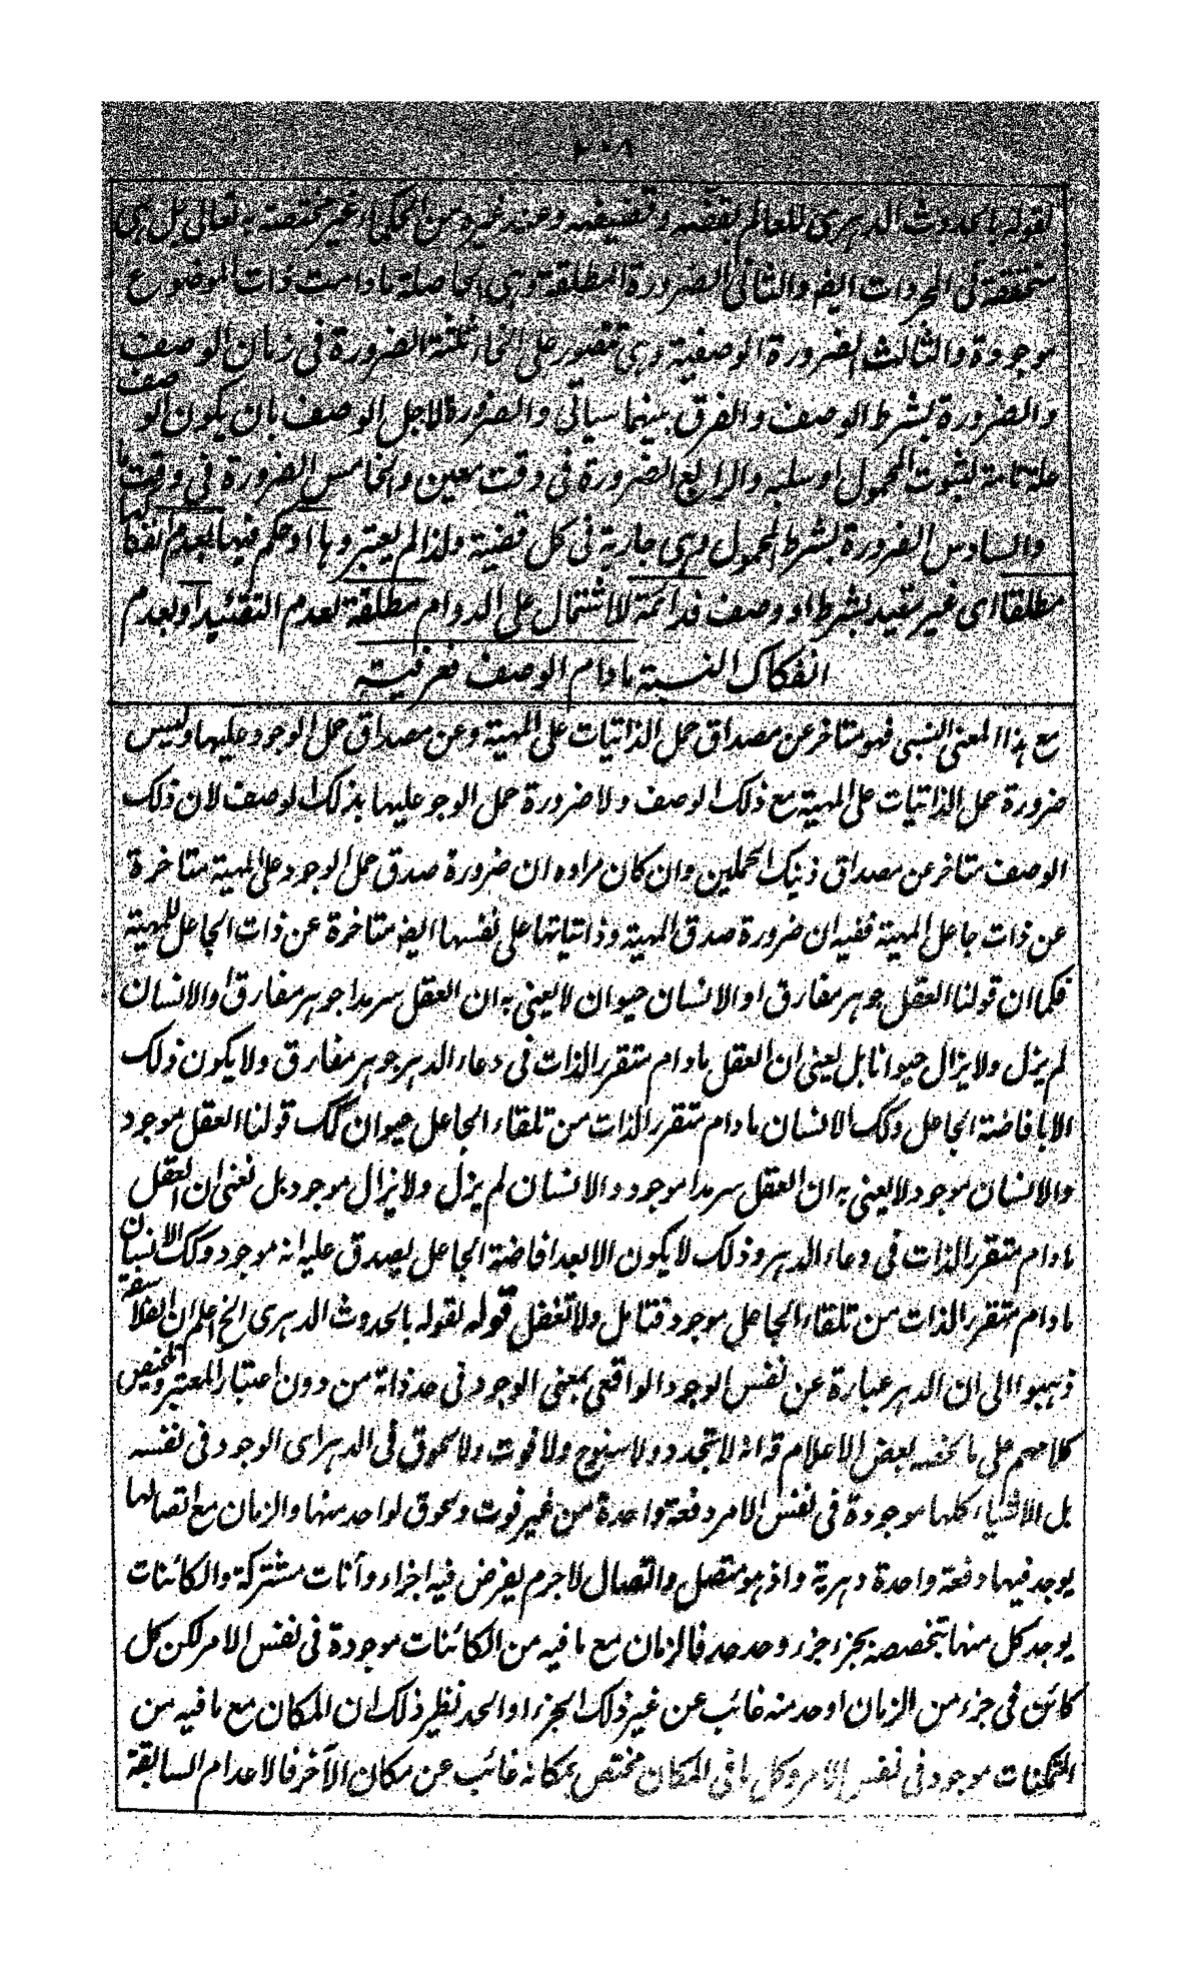 ٢٠٨
لقوله بالحدوث الدهرى للعالم بقضه وقضيضه وعند غيره من الحكماء غير مختصة به تعالى بل هى
متحققة فى المجردات ايضه والثانى الضرورة المطلقة وهى الحاصلة مادامت ذات الموضوع
موجودة والثالث الضرورة الوصفية وهى تتصور على انحاء ثلثة الضرورة فى زمان الوصف
والضرورة بشرط الوصف والفرق بينهما سياتى والضرورة لاجل الوصف بان يكون الوصف
علة تامة لثبوت المحمول او سلبه والرابع الضرورة فى وقت معين والخامس الضرورة فى وقت ما
والسادس الضرورة بشرط المحمول وهى جارية فى كل قضية ولذا لم يعتبروها او حكم فيها بعدم انفكاكها
مطلقا اى غير مقيد بشرط او وصف فدائمة لاشتمال على الدوام مطلقة لعدم التقئيد او بعدم
انفكاك النسبة مادام الوصف فعرفية
مع هذا المعنى النسبى فهو متاخر عن مصداق حمل الذاتيات على المهية وعن مصداق حمل الوجود عليها وليس
ضرورة حمل الذاتيات على المهية مع ذلك الوصف ولا ضرورة حمل الوجو عليها بذلك الوصف لان ذلك
الوصف متاخر عن مصداق ذينك الحملين وان كان مراده ان ضرورة صدق حمل الوجود على المهية متاخرة
عن ذات جاعل المهية ففيه ان ضرورة صدق المهية وذاتياتها على نفسها ايضه متاخرة عن ذات الجاعل للمهية
فكما ان قولنا العقل جوهر مفارق او الانسان حيوان لا يعنى به ان العقل سرمدا جوهر مفارق او الانسان
لم يزل ولا يزال حيوانا بل يعنى ان العقل مادام متقرر الذات فى دعاء الدهر جوهر مفارق ولا يكون ذلك
الا بافاضة الجاعل وكك الانسان مادام متقرر الذات من تلقاء الجاعل حيوان كك قولنا العقل موجود
والانسان موجود لا يعنى به ان العقل سرمدا موجود والانسان لم يزل ولا يزال موجود بل نعنى ان العقل
مادام متقرر الذات فى دعاء الدهر وذلك لا يكون الا بعد افاضة الجاعل يصدق عليه انه موجود وكك الانسان
مادام متقرر الذات من تلقاء الجاعل موجود فتامل ولا تغفل قوله لقوله بالحدوث الدهرى الخ اعلم ان الفلاسفة
ذهبوا الى ان الدهر عبارة عن نفس الوجود الواقعى بمعنى الوجود فى حد ذاته من دون اعتبار المعتبر وتلخيص
كلامهم على ما لخصه بعض الاعلام قه انه لا تجدد ولا سنوح ولا فوت ولا لحوق فى الدهر اى الوجود فى نفسه
بل الاشياء كلها موجودة فى نفس الامر دفعة واحدة من غير فوت ولحوق لواحد منها والزمان مع اتصالها
يوجد فيها دفعة واحدة دهرية واذ هو متصل واتصال لاجرم يفرض فيه اجزاء وآنات مشتركة والكائنات
يوجد كل منها بتخصصه بجزء جزء وحد حد فالزمان مع ما فيه من الكائنات موجودة فى نفس الامر لكن كل
كائن فى جزء من الزمان او حد منه غائب عن غير ذلك الجزء او الحد نظير ذلك ان المكان مع ما فيه من
المتمكنات موجود فى نفس الامر وكل ما فى المكان مختص بمكانه غائب عن مكان الآخر فالاعدام السابقة